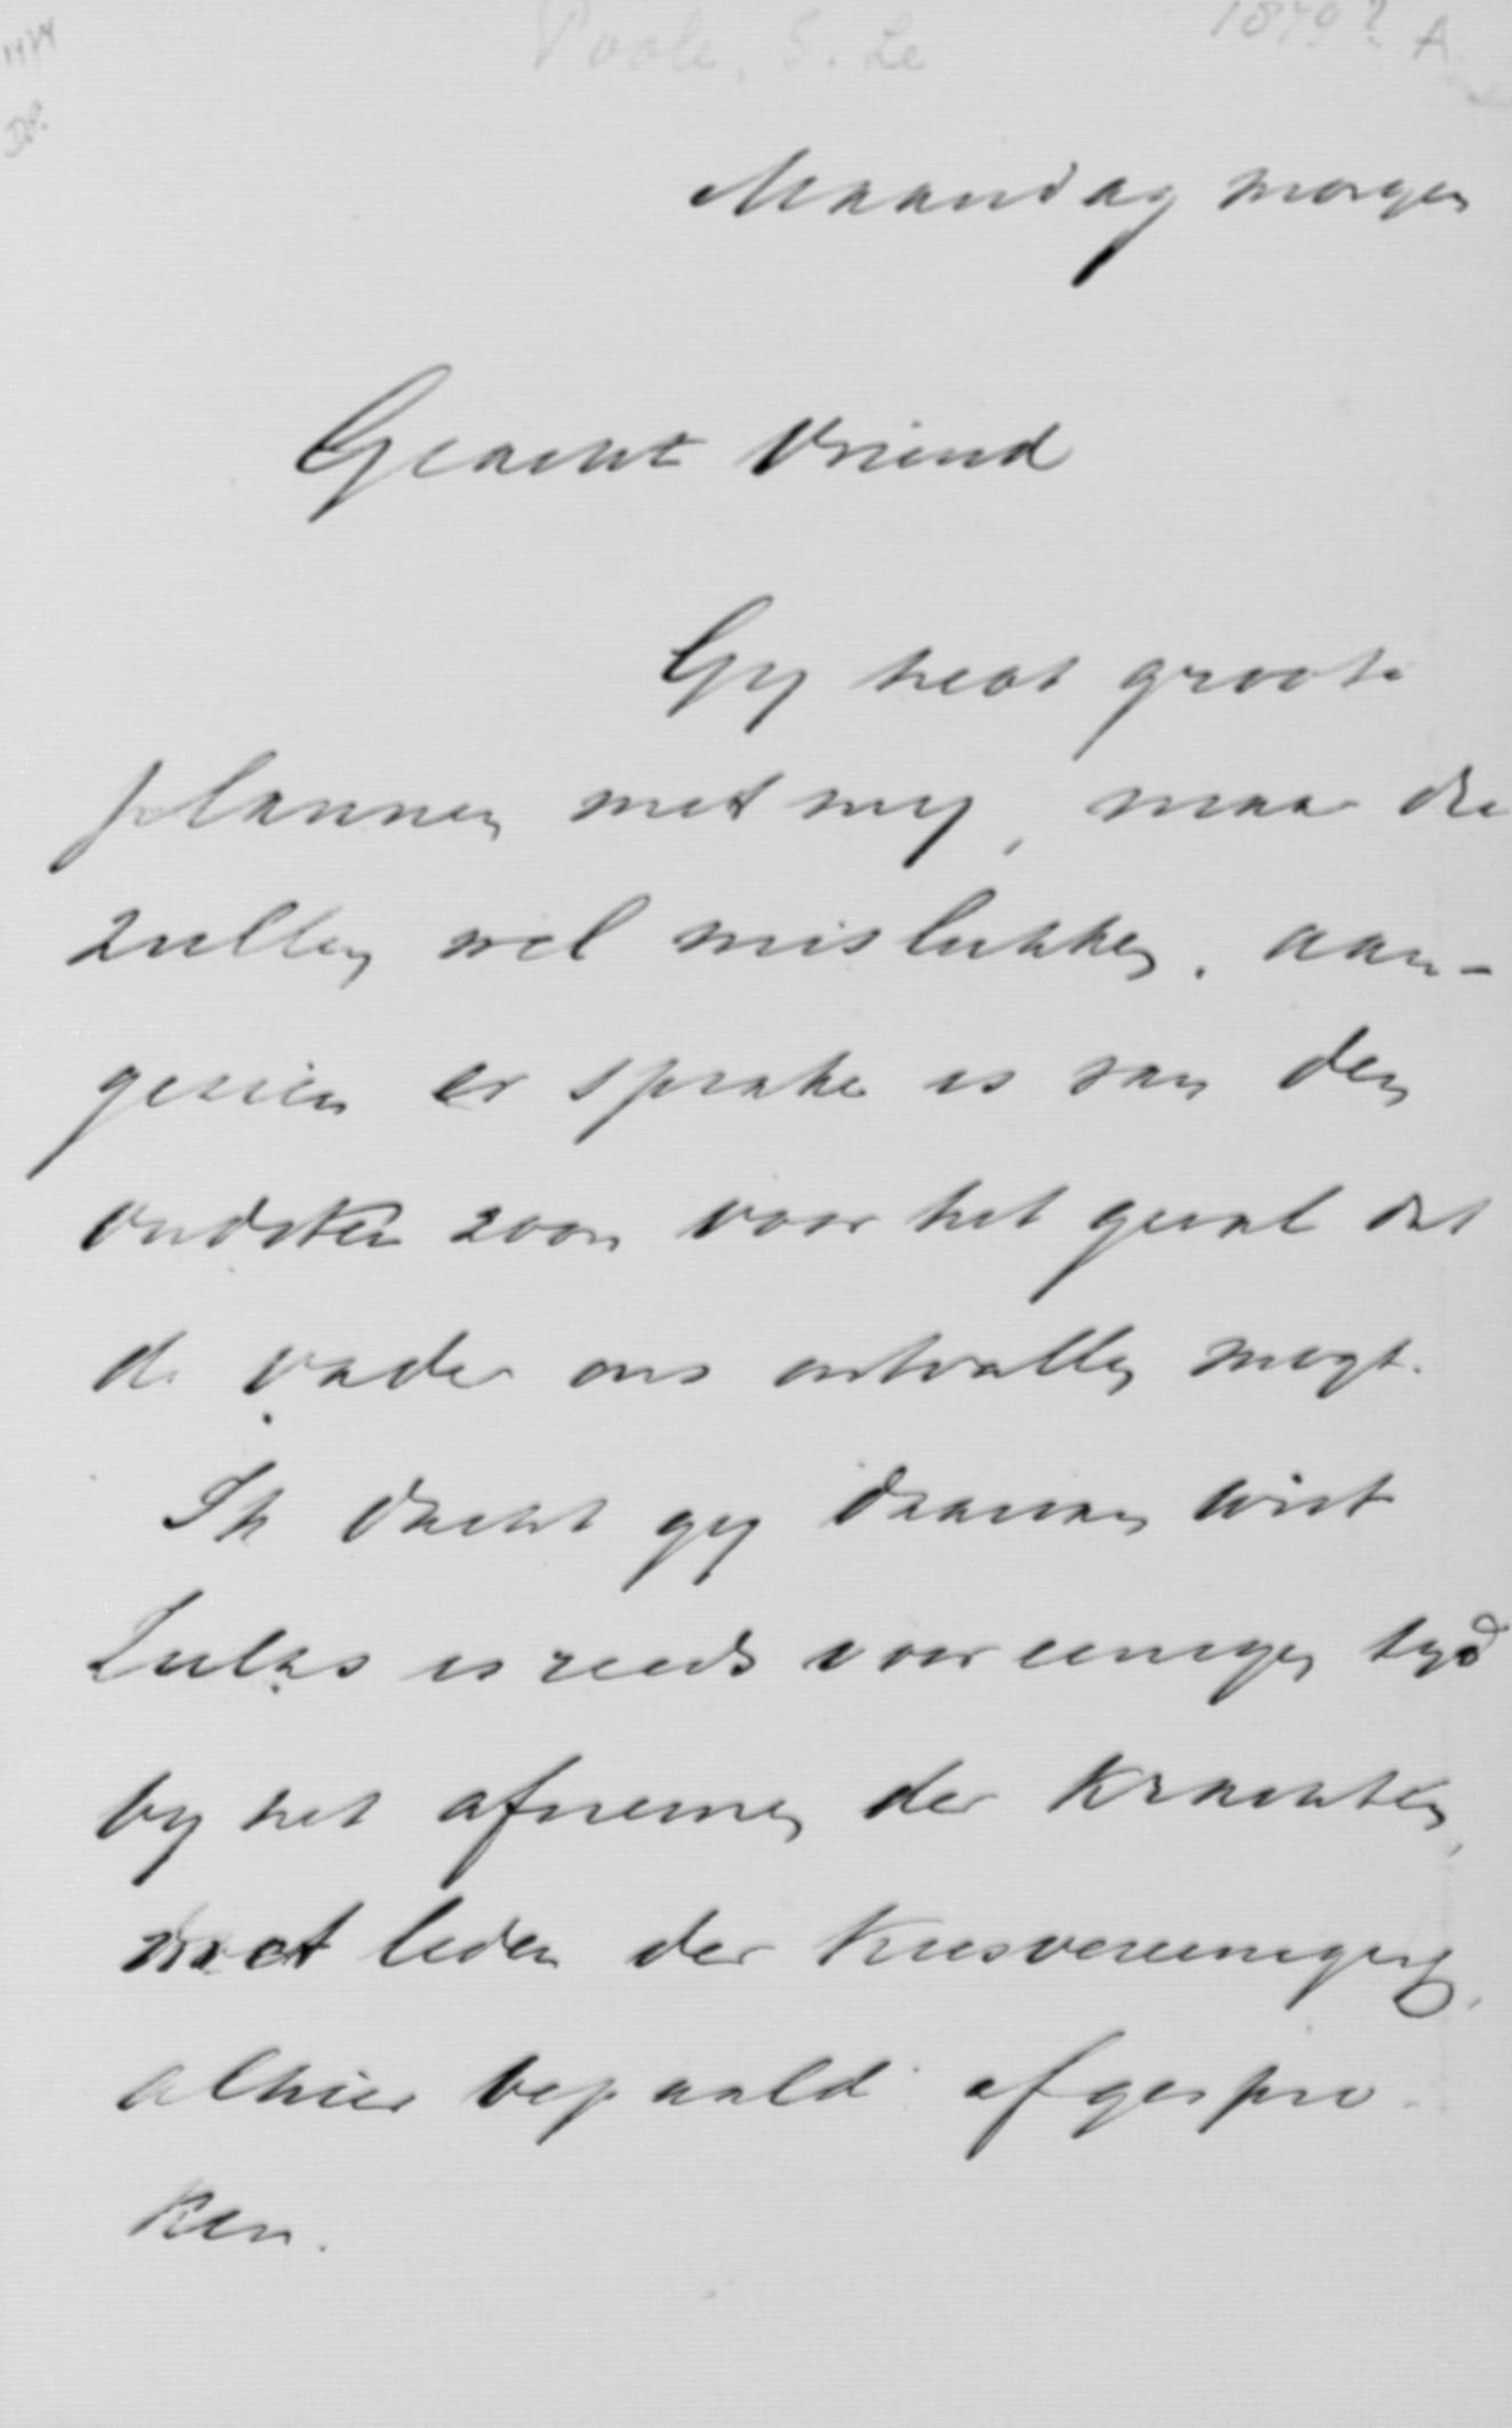 Poole, S. Le
1879? A.
Maandag morgen
Geacht Vriend
Gy hebt groote
plannen met my, maar die
zullen wel mislukken. aan-
gezien er sprake is van den
oudsten zoon voor het geval dat
de vader ons ontvallen mogt.
Ik dacht gy daarvan wist
Zulks is reeds voor eenigen tyd
by het afnemen der krachten,
met leden der Kiesvereeniging,
alhier bepaald afgespro
ken.